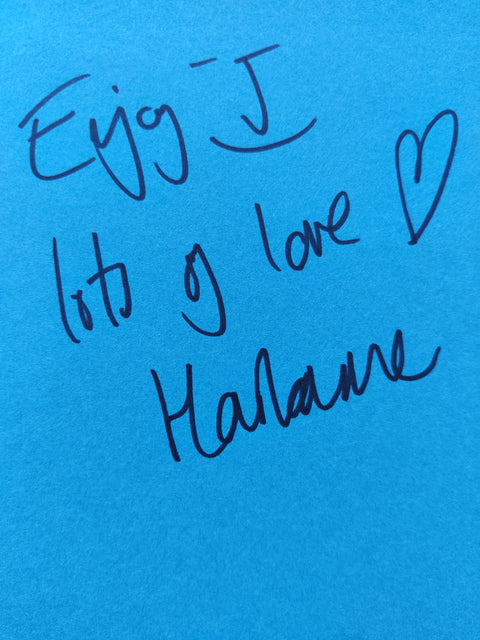 Enjoy
lots of love ♡
Marianne